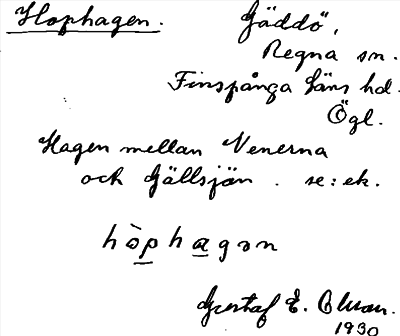 Hophagen. Gäddö,
Regna sn.
Finspånga läns hd.
Ögl.
Hagen mellan Venerna
och Gällsjön. se: ek.
hòp hagan
Gustaf E.
1930